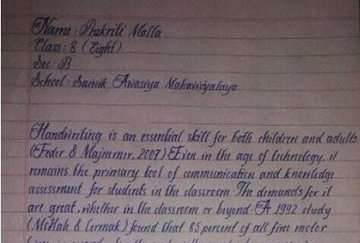 Name : Prakriti Malla
Class : 8 (Eight)
Sec : B
School : Sainik Awasiya Mahavidyalaya
Handwriting is an essential skill for both children and adults
(Feder & Majnemer, 2007) Even in the age of technology, it
remains the primary tool of communication and knowledge
assessment for students in the classroom. The demands for it
are great, whether in the classroom or beyond. A 1992 study
(McHale & Cermak) found that 85 percent of all fine motor